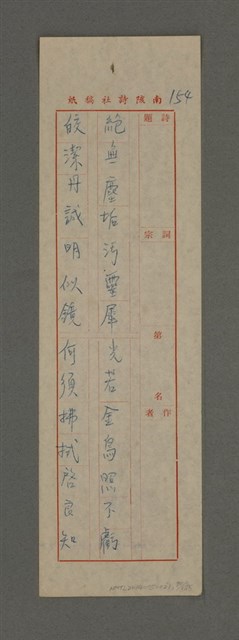 南陔詩社稿紙
154
詩題
詞宗
第 名
作者
絕無塵垢污靈犀光若金烏照不虧
皎潔丹誠明似鏡何須拂拭啓良知